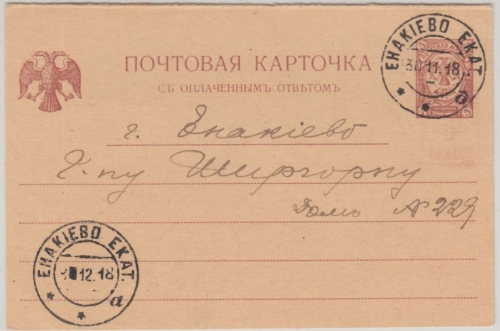 ПОЧТОВАЯ КАРТОЧКА
СЪ ОПЛАЧЕННЫМЪ ОТВѢТОМЪ
ЕНАКІЕВО ЕКАТ.
30.11.18
а
г. Енакіево
Г-ну Ширгорну
Домъ № 229
ЕНАКІЕВО ЕКАТ.
12.18
а